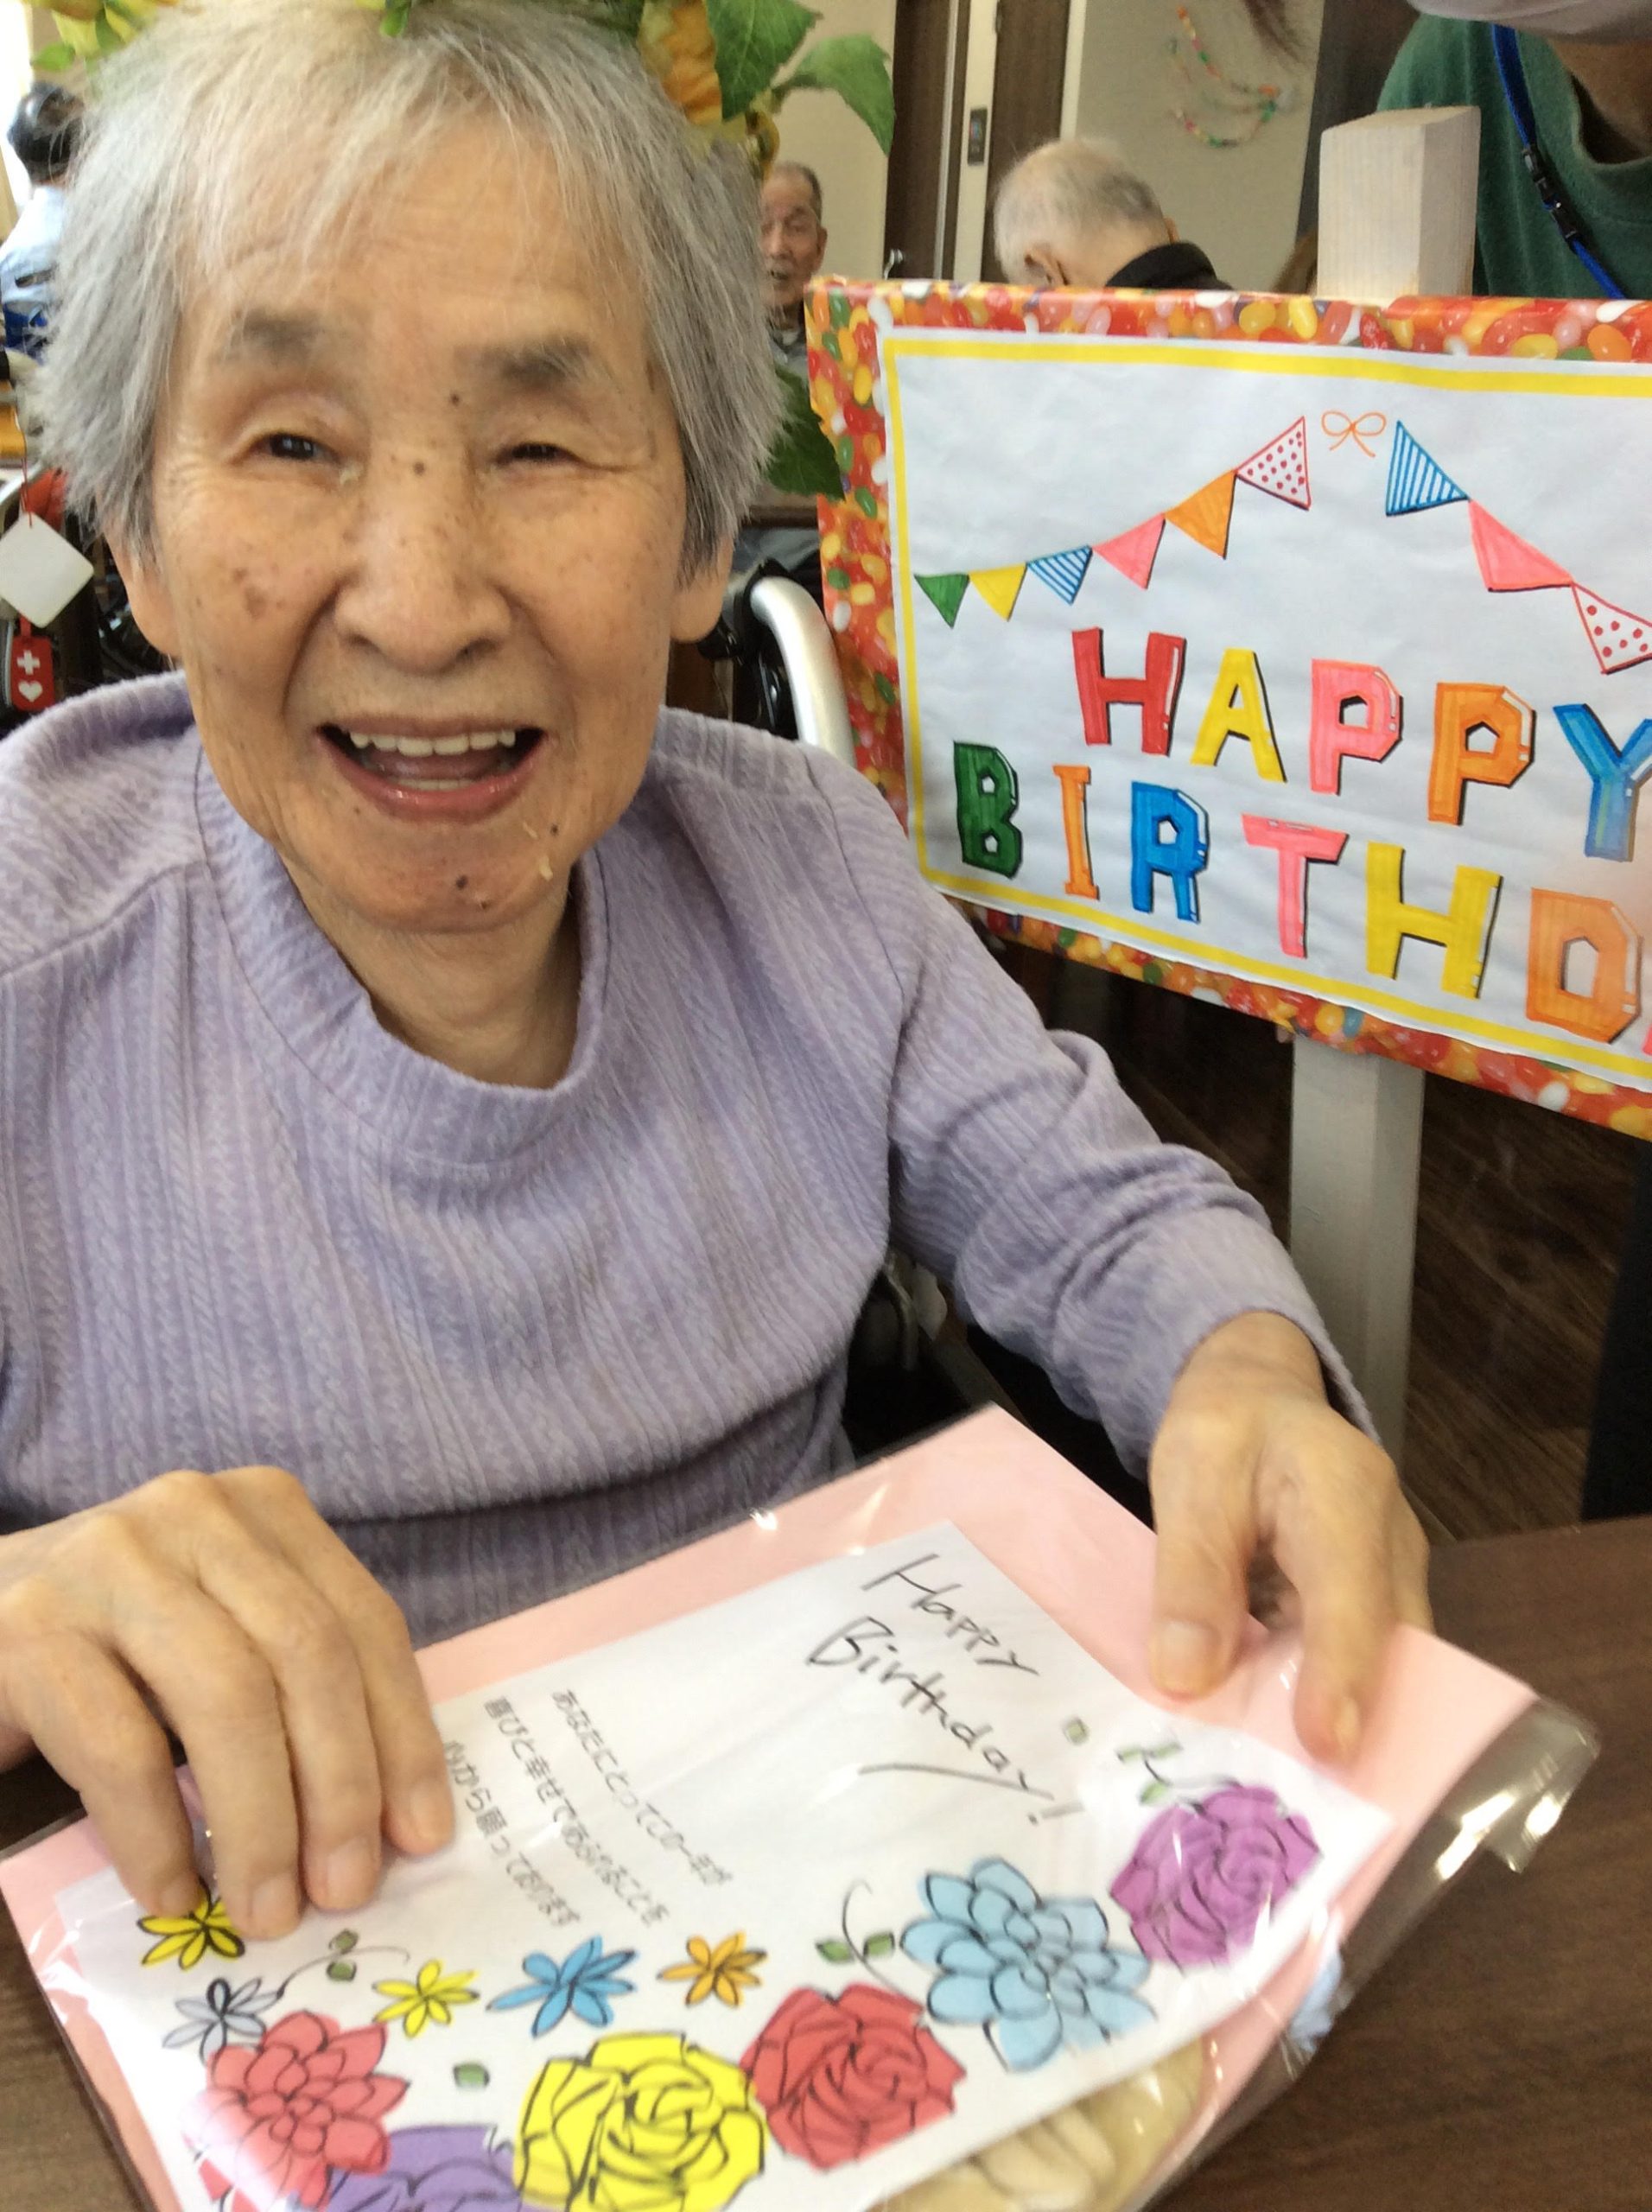 HAPPY
BIRTHD
Happy
Birthday!
あなたにとってこの一年が
喜びと幸せであふれることを
心から願っております